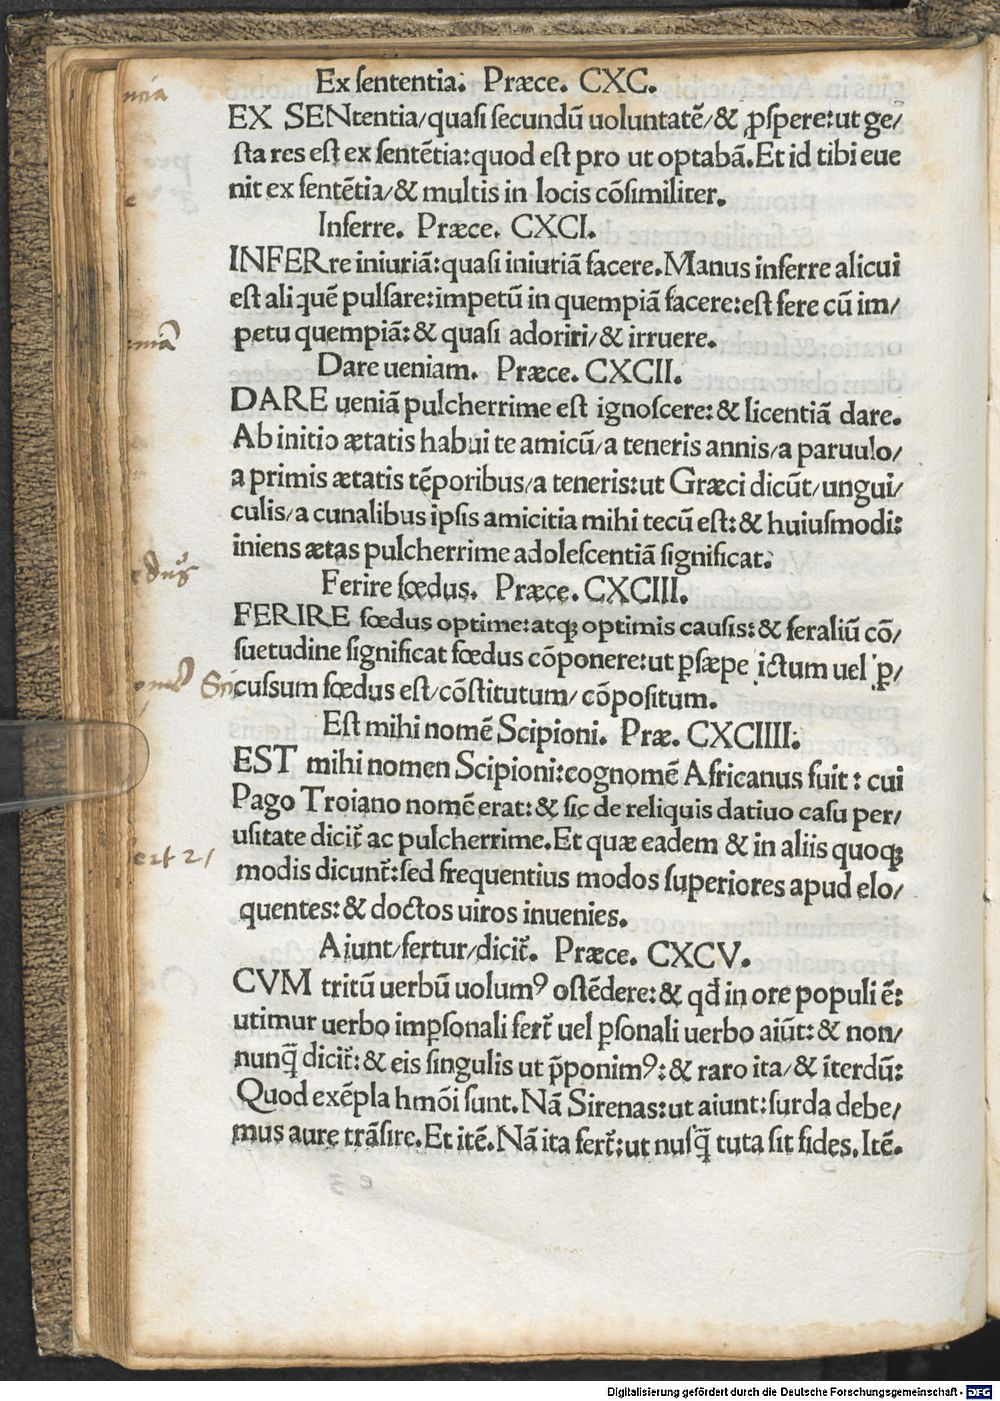 Ex sententia. Præce. CXC.
EX SENtentia/quasi secundũ uoluntatẽ/& ꝓspere:ut ge/
sta res est ex sentẽtia:quod est pro ut optabã.Et id tibi eue
nit ex sentẽtia/& multis in locis cõsimiliter.
Inferre. Præce. CXCI.
INFERre iniuriã:quasi iniuriã facere.Manus inferre alicui
est aliquẽ pulsare:impetũ in quempiã facere:est fere cũ im/
petu quempiã:& quasi adoriri/& irruere.
Dare ueniam. Præce. CXCII.
DARE ueniã pulcherrime est ignoscere:& licentiã dare.
Ab initio ætatis habui te amicũ/a teneris annis/a paruulo/
a primis ætatis tẽporibus/a teneris:ut Græci dicũt/ungui/
culis/a cunalibus ipsis amicitia mihi tecũ est:& huiusmodi:
iniens ætas pulcherrime adolescentiã significat.
Ferire fœdus. Præce. CXCIII.
FERIRE fœdus optime:atqꝫ optimis causis:& feraliũ cõ/
suetudine significat fœdus cõponere:ut ꝑsæpe ictum uel ꝑ/
cussum fœdus est/cõstitutum/cõpositum.
Est mihi nomẽ Scipioni. Præ. CXCIIII.
EST mihi nomen Scipioni:cognomẽ Africanus fuit: cui
Pago Troiano nomẽ erat:& sic de reliquis datiuo casu per/
usitate dicit̃ ac pulcherrime.Et quæ eadem & in aliis quoqꝫ
modis dicunt̃:sed frequentius modos superiores apud elo/
quentes:& doctos uiros inuenies.
Aiunt/fertur/dicit̃. Præce. CXCV.
CVM tritũ uerbũ uolumꝰ ostẽdere:& qđ in ore populi ẽ:
utimur uerbo impsonali fert̃ uel ꝑsonali uerbo aiũt:& non/
nunq̃ dicit̃:& eis singulis ut p̃ponimꝰ:& raro ita/& ĩterdũ:
Quod exẽpla hmõi sunt.Nã Sirenas:ut aiunt:surda debe/
mus aure trãsire.Et itẽ.Nã ita fert̃:ut nusq̃ tuta sit fides.Itẽ.
Digitalisierung gefördert durch die Deutsche Forschungsgemeinschaft - DFG